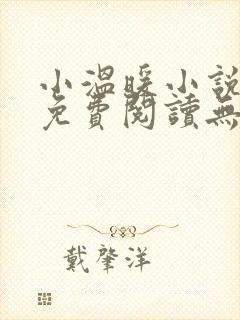 小溫暖小說
免費閱讀無
戴肇洋